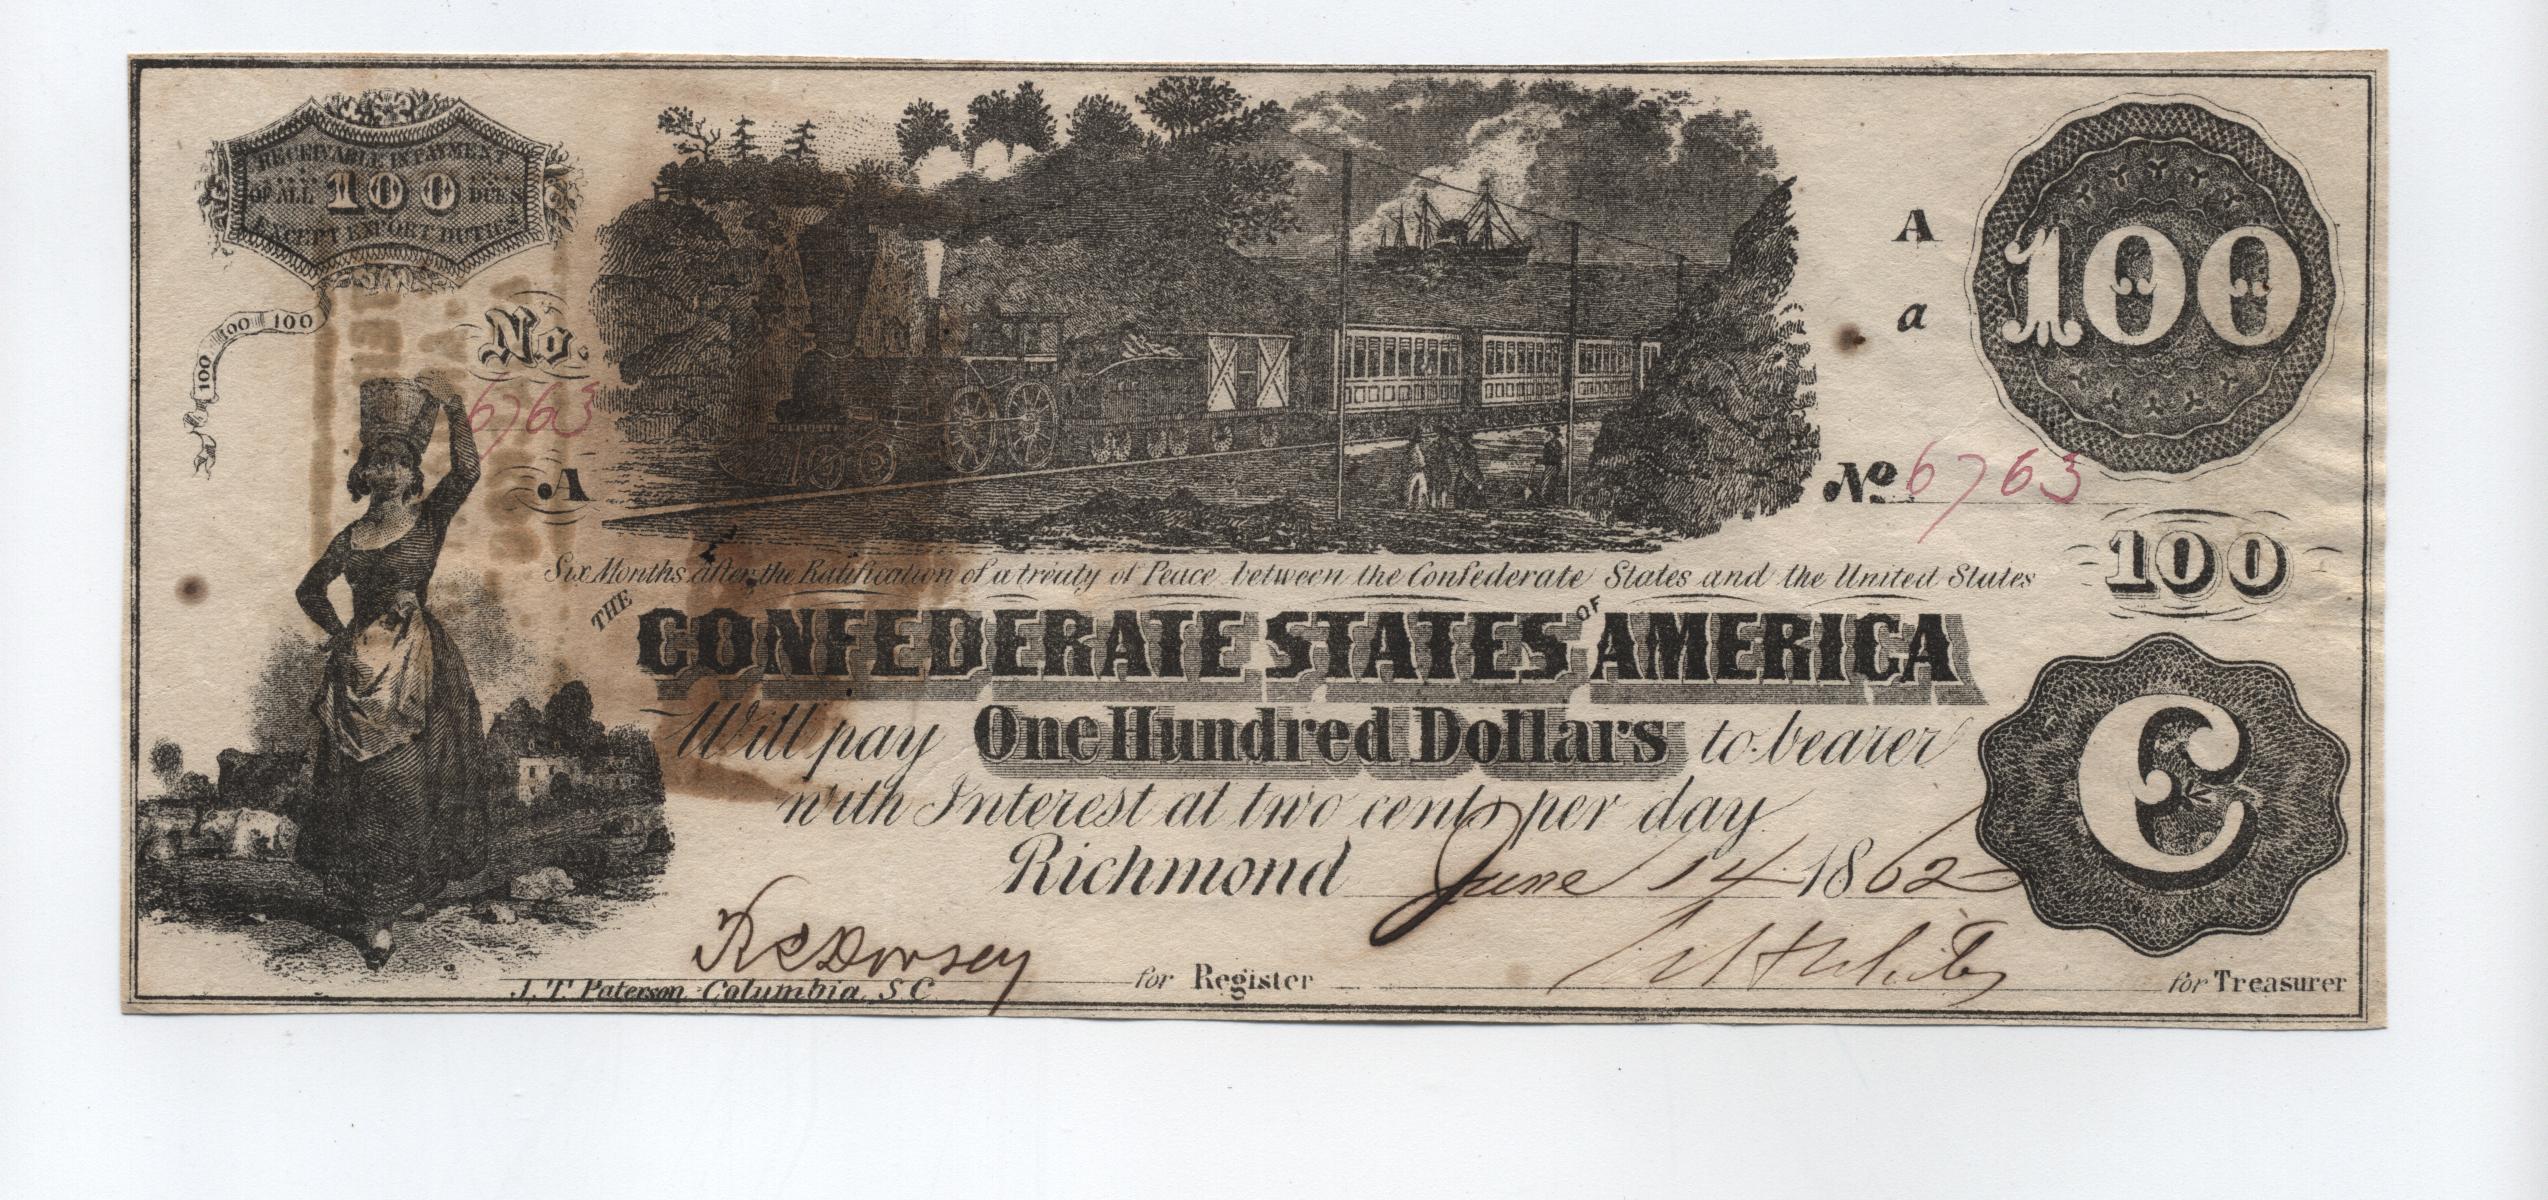 RECEIVABLE IN PAYMENT
OF ALL 100 DUES
EXCEPT EXPORT DUTIES
100 100 100
No.
6763
A
A
a
100
No 6763
100
Six Months after the Ratification of a treaty of Peace between the Confederate States and the United States
THE CONFEDERATE STATES OF AMERICA
Will pay One Hundred Dollars to bearer
with Interest at two cents per day
Richmond June 14 1862
C
Dorsey for Register for Treasurer
J. T. Paterson Columbia, S.C